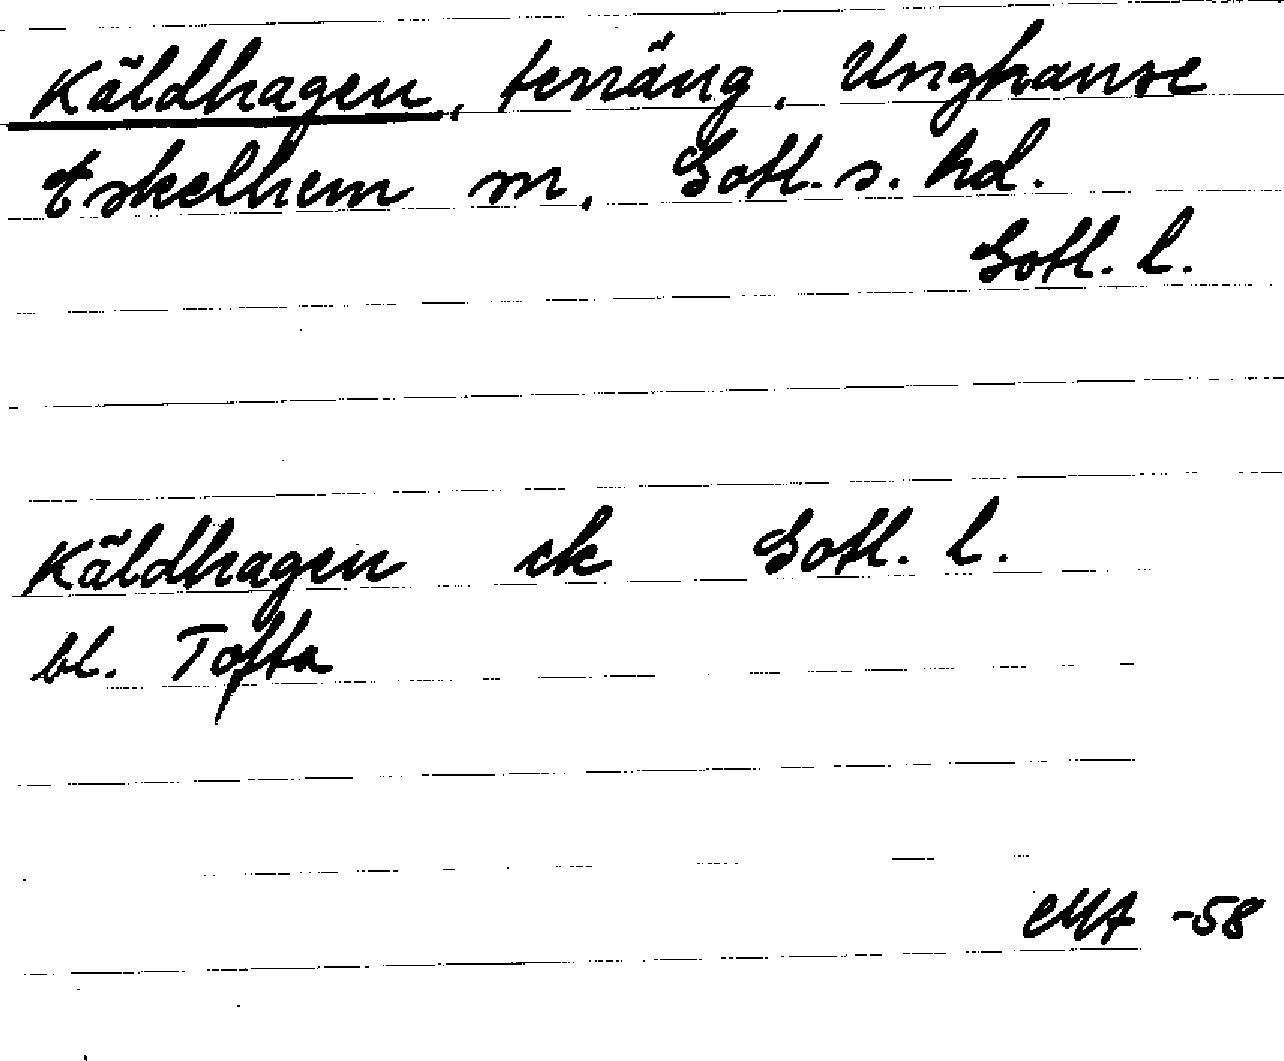 Käldhagen, terräng, Unghanse
Eskelhem sn, Gotl. s. hd.
Gotl. l.
Käldhagen ek Gotl. l.
bl. Tofta
EMA -58